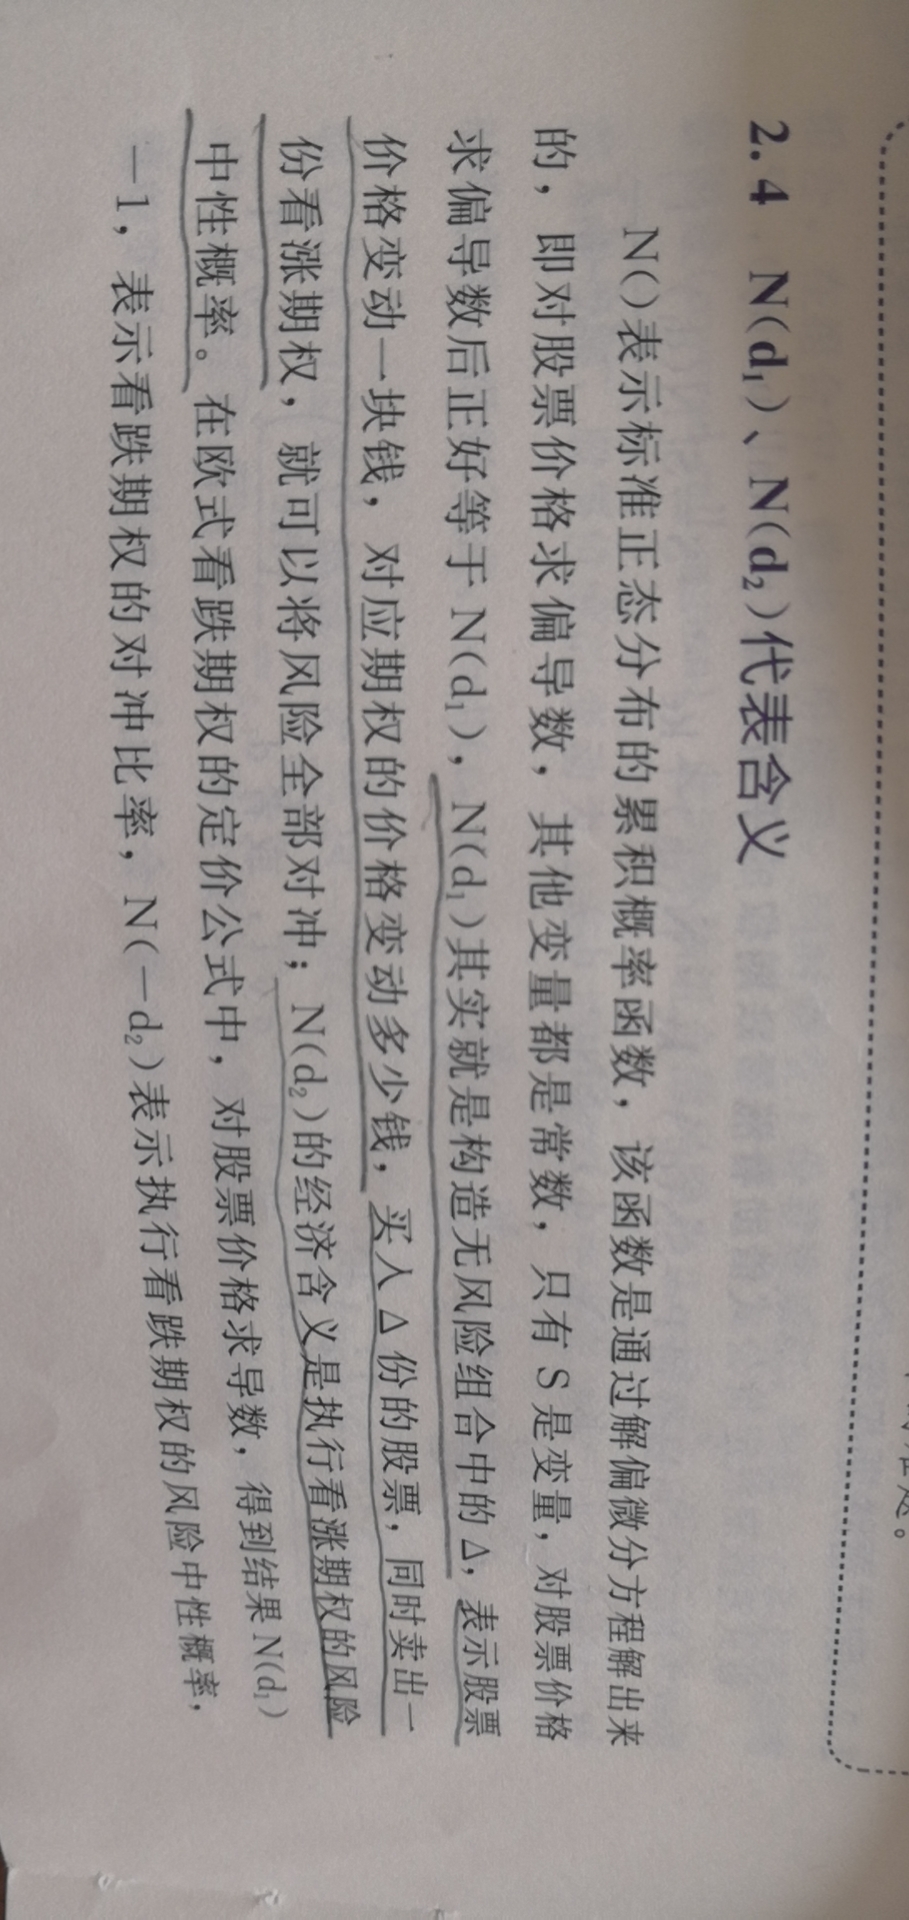 2.4 N(d₁)、N(d₂)代表含义
N()表示标准正态分布的累积概率函数，该函数是通过解偏微分方程解出来
的，即对股票价格求偏导数，其他变量都是常数，只有 S 是变量，对股票价格
求偏导数后正好等于 N(d₁)，N(d₁)其实就是构造无风险组合中的 Δ，表示股票
价格变动一块钱，对应期权的价格变动多少钱，买入 Δ 份的股票，同时卖出一
份看涨期权，就可以将风险全部对冲；N(d₂)的经济含义是执行看涨期权的风险
中性概率。在欧式看跌期权的定价公式中，对股票价格求导数，得到结果 N(d₁)
－1，表示看跌期权的对冲比率，N(－d₂)表示执行看跌期权的风险中性概率，